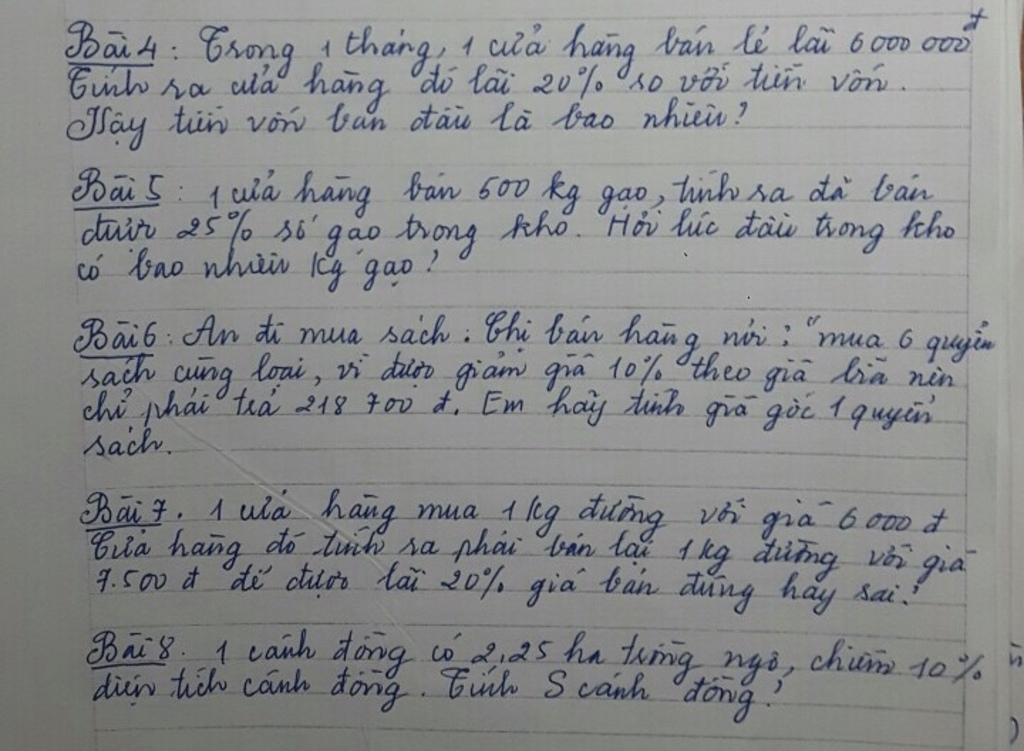 Bài 4 : Trong 1 tháng, 1 cửa hàng bán lẻ lãi 6 000 000đ
Tính ra cửa hàng đó lãi 20% so với tiền vốn.
Vậy tiền vốn ban đầu là bao nhiêu?
Bài 5 : 1 cửa hàng bán 500 kg gạo, tính ra đã bán
được 25% số gạo trong kho. Hỏi lúc đầu trong kho
có bao nhiêu kg gạo?
Bài 6 : An đi mua sách. Chị bán hàng nói : "mua 6 quyển
sách cùng loại, vì được giảm giá 10% theo giá bìa nên
chỉ phải trả 218 700 đ. Em hãy tính giá gốc 1 quyển
sách.
Bài 7. 1 cửa hàng mua 1 kg đường với giá 6 000 đ
Cửa hàng đó tính ra phải bán lại 1 kg đường với giá
7.500 đ để được lãi 20% giá bán đúng hay sai?
Bài 8. 1 cánh đồng có 2,25 ha trồng ngô, chiếm 10%
diện tích cánh đồng. Tính S cánh đồng?